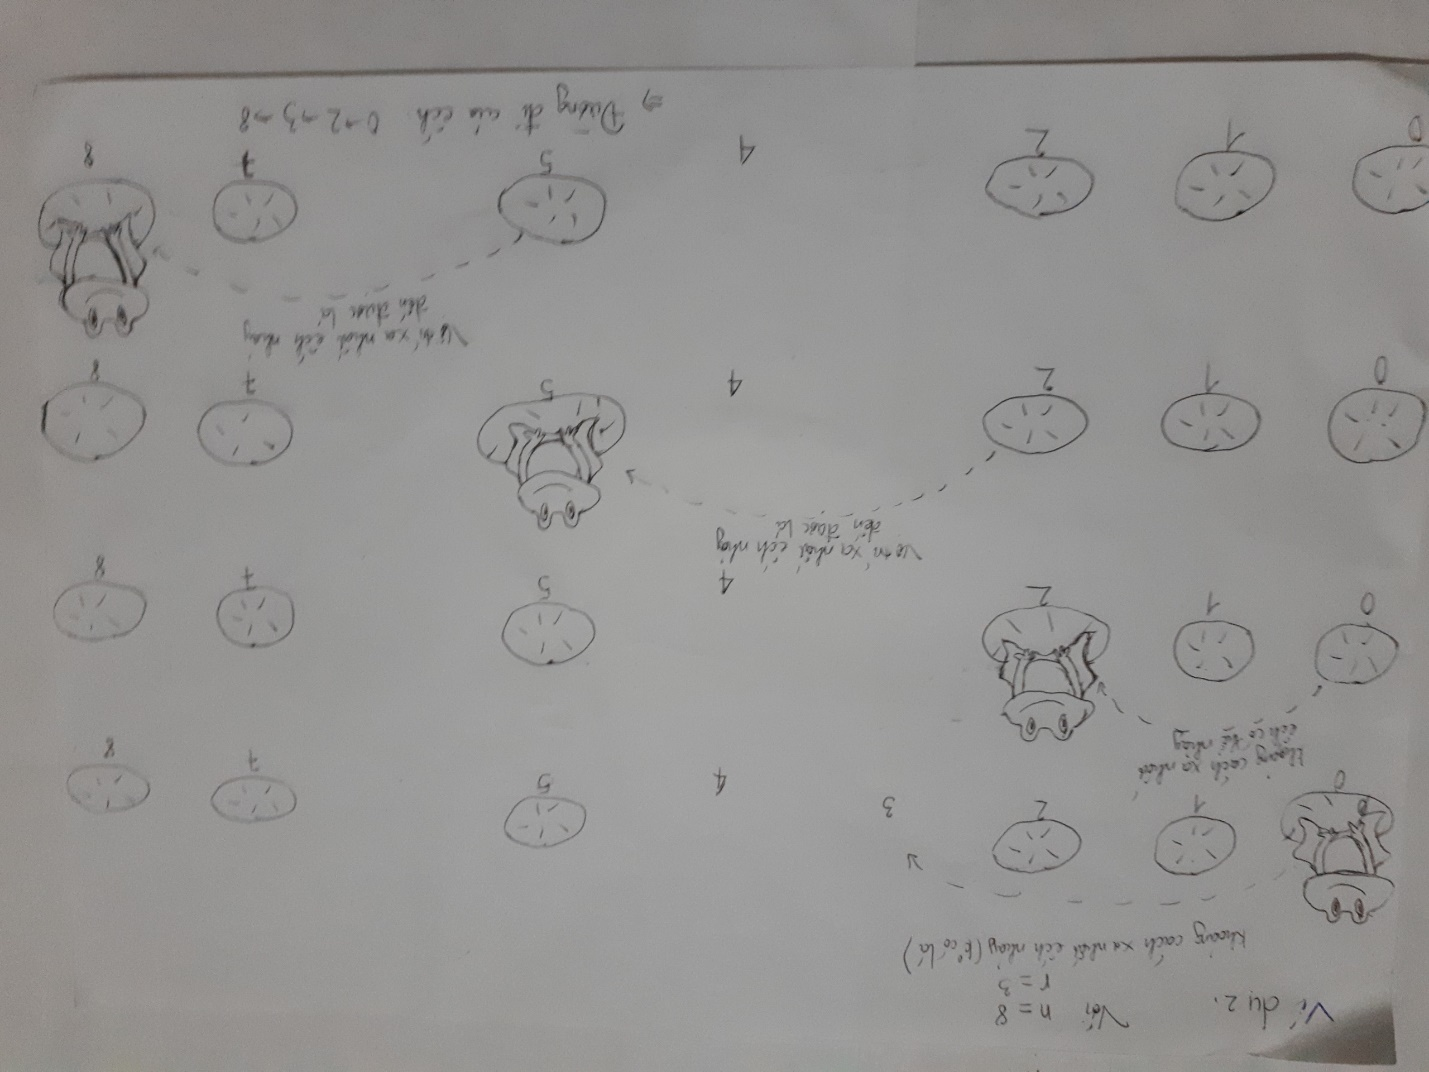 Ví dụ 2. Với n = 8
r = 3
khoảng cách xa nhất ếch nhảy (k° có lá)
0 1 2 3 4 5 7 8
khoảng cách xa nhất
ếch có thể nhảy
0 1 2 4 5 7 8
Vị trí xa nhất ếch nhảy
đến được lá
0 1 2 4 5 7 8
Vị trí xa nhất ếch nhảy
đến được lá
0 1 2 4 5 7 8
⇒ Đường đi của ếch 0→2→3→8